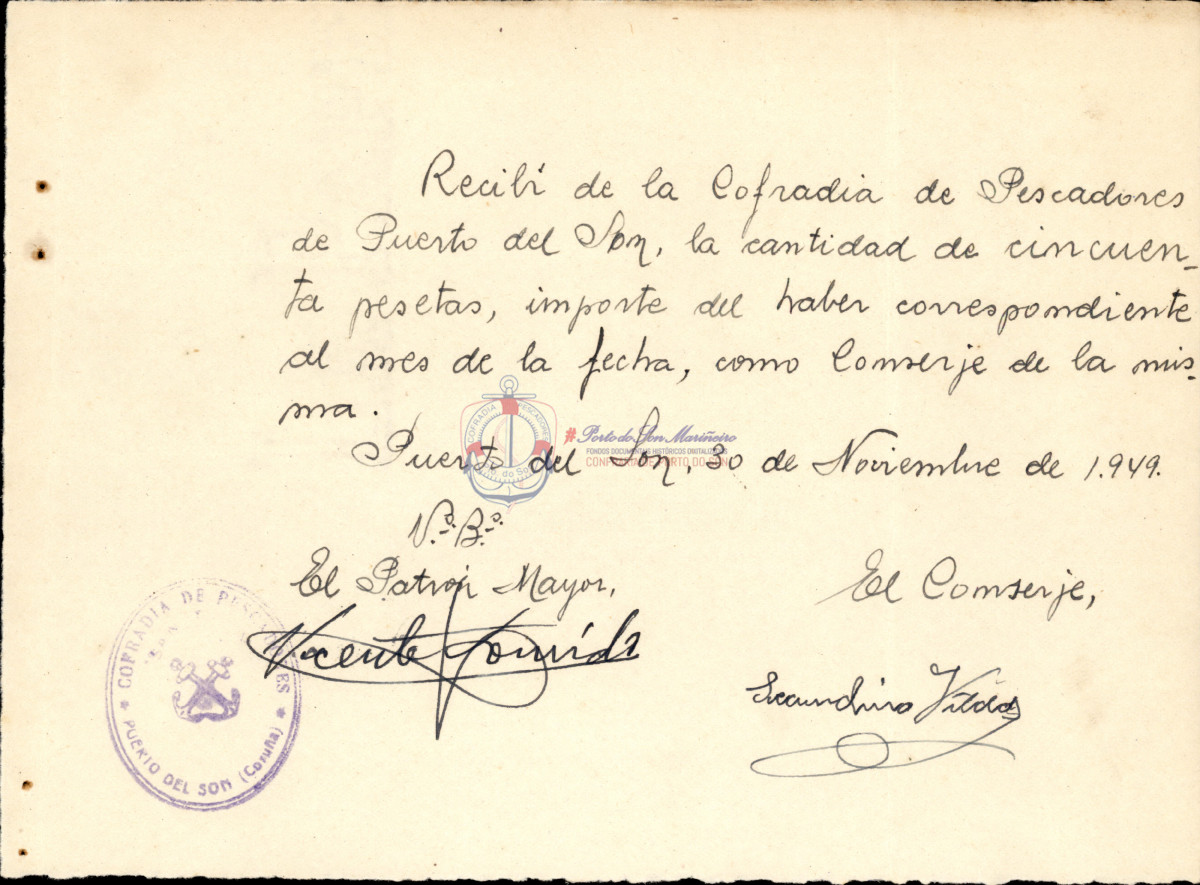 Recibí de la Cofradia de Pescadores
de Puerto del Son, la cantidad de cincuen-
ta pesetas, importe del haber correspondiente
al mes de la fecha, como Conserje de la mis-
ma.
COFRADIA PESCADORES
Pto. do Son
#Porto do Son Mariñeiro
FONDOS DOCUMENTAIS HISTÓRICOS DIXITALIZADOS
CONFRARÍA DE PORTO DO SON
Puerto del Son, 30 de Noviembre de 1.949.
Vº. Bº.
El Patrón Mayor,
El Conserje,
Vicente
Secundino
COFRADIA DE PESCADORES
PUERTO DEL SON (Coruña)